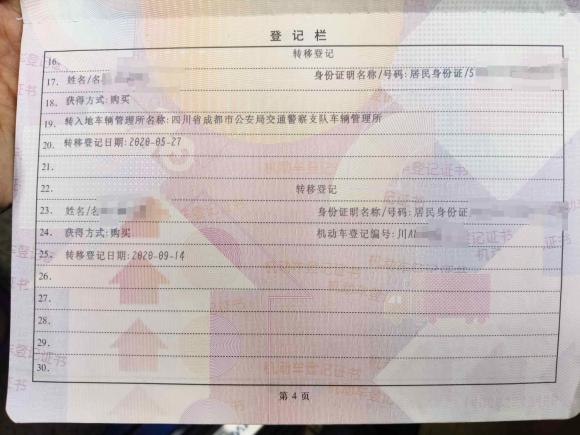 登记栏
16. 转移登记
17. 姓名/名 身份证明名称/号码:居民身份证/5
18. 获得方式:购买
19. 转入地车辆管理所名称:四川省成都市公安局交通警察支队车辆管理所
20. 转移登记日期:2020-05-27
21.
22. 转移登记
23. 姓名/名 身份证明名称/号码:居民身份证
24. 获得方式:购买 机动车登记编号:川A
25. 转移登记日期:2020-09-14
26.
27.
28.
29.
30.
第4页